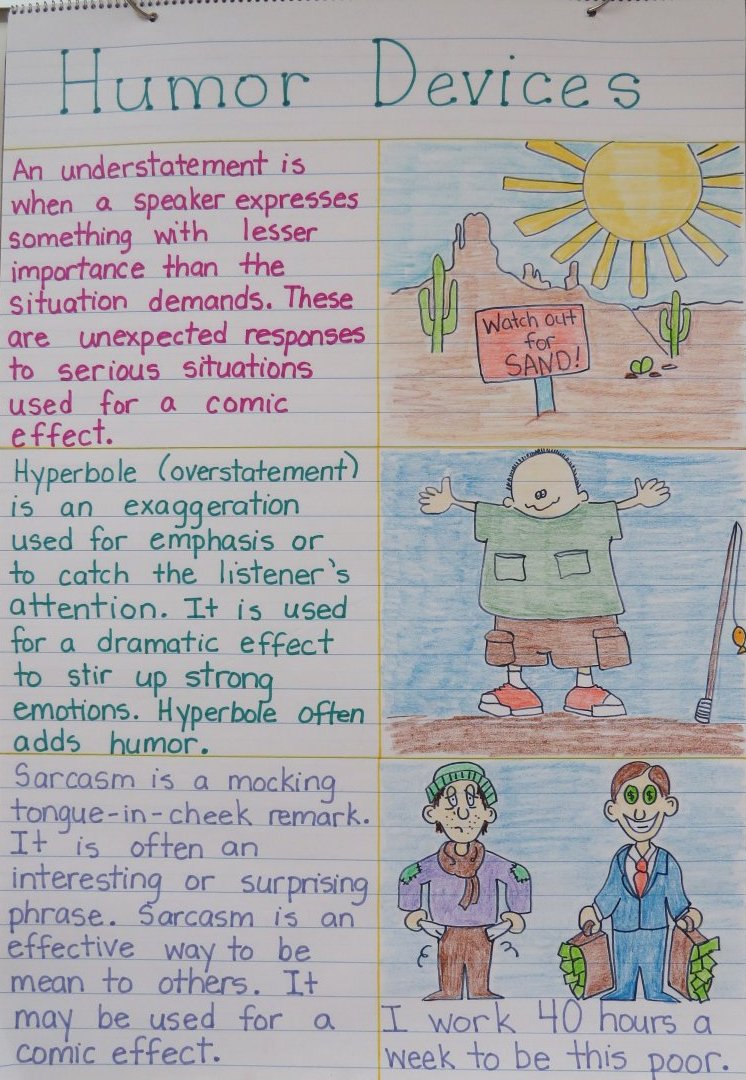 Humor Devices
An understatement is
when a speaker expresses
something with lesser
importance than the
situation demands. These
are unexpected responses
to serious situations
used for a comic
effect.
Watch out
for
SAND!
Hyperbole (overstatement)
is an exaggeration
used for emphasis or
to catch the listener's
attention. It is used
for a dramatic effect
to stir up strong
emotions. Hyperbole often
adds humor.
Sarcasm is a mocking
tongue-in-cheek remark.
It is often an
interesting or surprising
phrase. Sarcasm is an
effective way to be
mean to others. It
may be used for a
comic effect.
$ $
I work 40 hours a
week to be this poor.